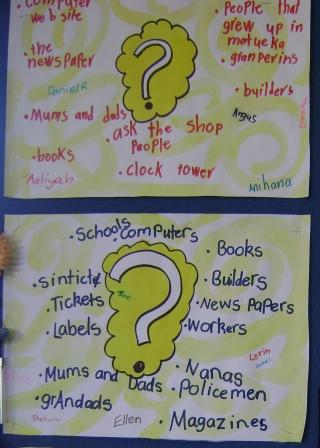 computer
web site
• People that
grew up in
motueka
• the
newspaper
• granperins
Daniel R
• builders
• Mums and dads
Angus
• ask the shop
People
• books
• clock tower
Aaliyah
mihana
• Schools
• Computers
• Books
• sinticte
• Builders
• Tickets
• News Papers
• Labels
• Workers
Lorin
• Mums and Dads
• Nanas
• Policemen
• grAndads
Ellen
• Magazines